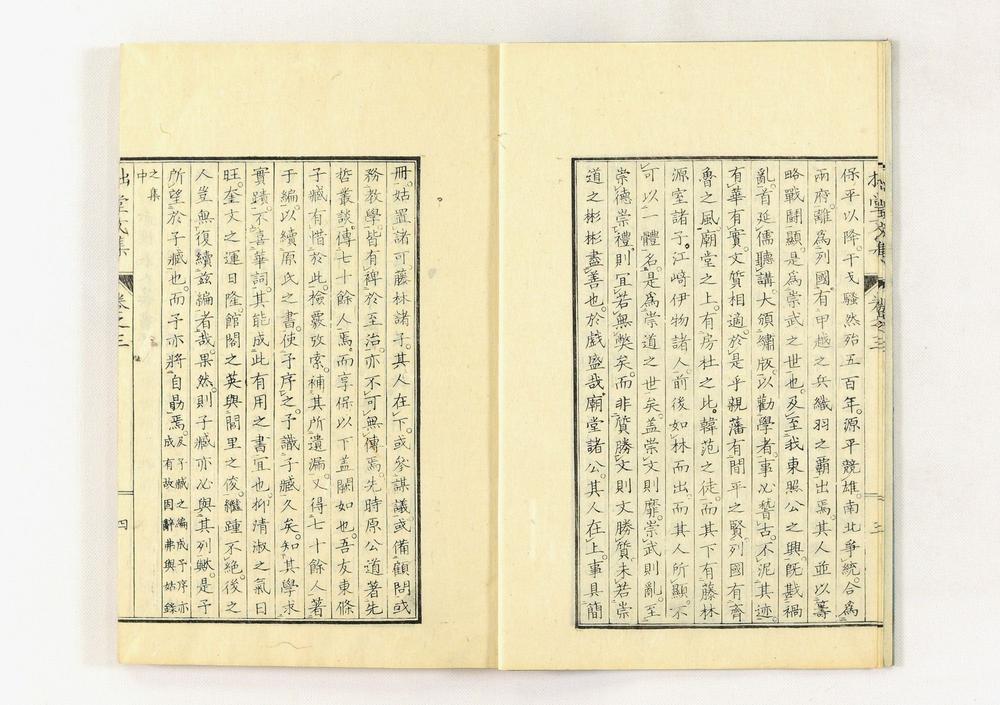 保平以降。干戈騷然殆五百年。源平競雄。南北爭統。合為
兩府。離為列國。有甲越之兵。織羽之霸出焉。其人並以籌
略戰鬪顯。是為崇武之世也。及至我東照公之興。既戡禍
亂。首延儒聽講。大頒繡版。以勸學者。事必稽古。不泥其迹。
有華有實。文質相適。於是乎親藩有間平之賢。列國有齊
魯之風。廟堂之上。有房杜之比。韓范之徒。而其下有藤林
源室諸子。江﨑伊物諸人。前後如林而出。而其人所顯。不
可以一體名。是為崇道之世矣。盖崇文則靡。崇武則亂。至
崇德崇禮。則宜若無獘矣。而非質勝文則文勝質。未若崇
道之彬彬盡善也。於戲盛哉。廟堂諸公。其人在上。事具簡
三
冊。姑置諸可。藤林諸子。其人在下。或參謀議或備顧問或
務教學。皆有裨於至治。亦不可無傳焉。先時原公道著先
哲叢談。傳七十餘人焉。而享保以下盖闕如也。吾友東條
子臧有惜於此。撿覈攷索。補其所遺漏。又得七十餘人。著
于編。以續原氏之書。使予序之。予識子臧久矣。知其學求
實蹟。不喜華詞。其能成此有用之書宜也。抑清淑之氣日
旺。奎文之運日隆。館閣之英與閭里之俊。繼踵不絕。後之
人豈無復續茲編者哉。果然。則子臧亦必與其列歟。是予
所望於子臧也。而子亦將自勗焉。
及子臧之編成予序亦
成有故因辭弗與姑錄
之集
中
堂文集
卷之三
四